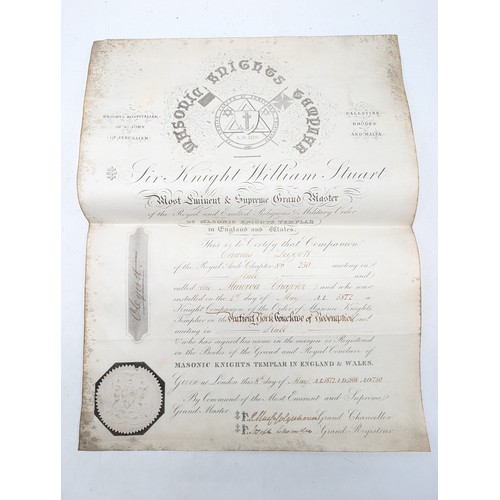 MASONIC KNIGHTS TEMPLAR
KNIGHTS HOSPITALLER
OF ST JOHN
OF JERUSALEM
PALESTINE
RHODES
AND MALTA.
Sir Knight William Stuart
Most Eminent & Supreme Grand Master
of the Royal and Exalted Religious & Military Order
OF MASONIC KNIGHTS TEMPLAR
in England and Wales.
This is to Certify that Companion
Leggott
of the Royal Arch Chapter No 250 meeting in
Hull and
called the Minerva Chapter and who was
installed on the 4th day of May A.D. 1872 a
Knight Companion of the Order of Masonic Knights
Templar in the Antient York Conclave of Redemption
meeting in Hull
& who has signed his name in the margin is Registered
in the Books of the Grand and Royal Conclave of
MASONIC KNIGHTS TEMPLAR IN ENGLAND & WALES.
Given at London this 8th day of May A.D. 1872
By Command of the Most Eminent and Supreme
Grand Master
Grand Chancellor
Grand Registrar